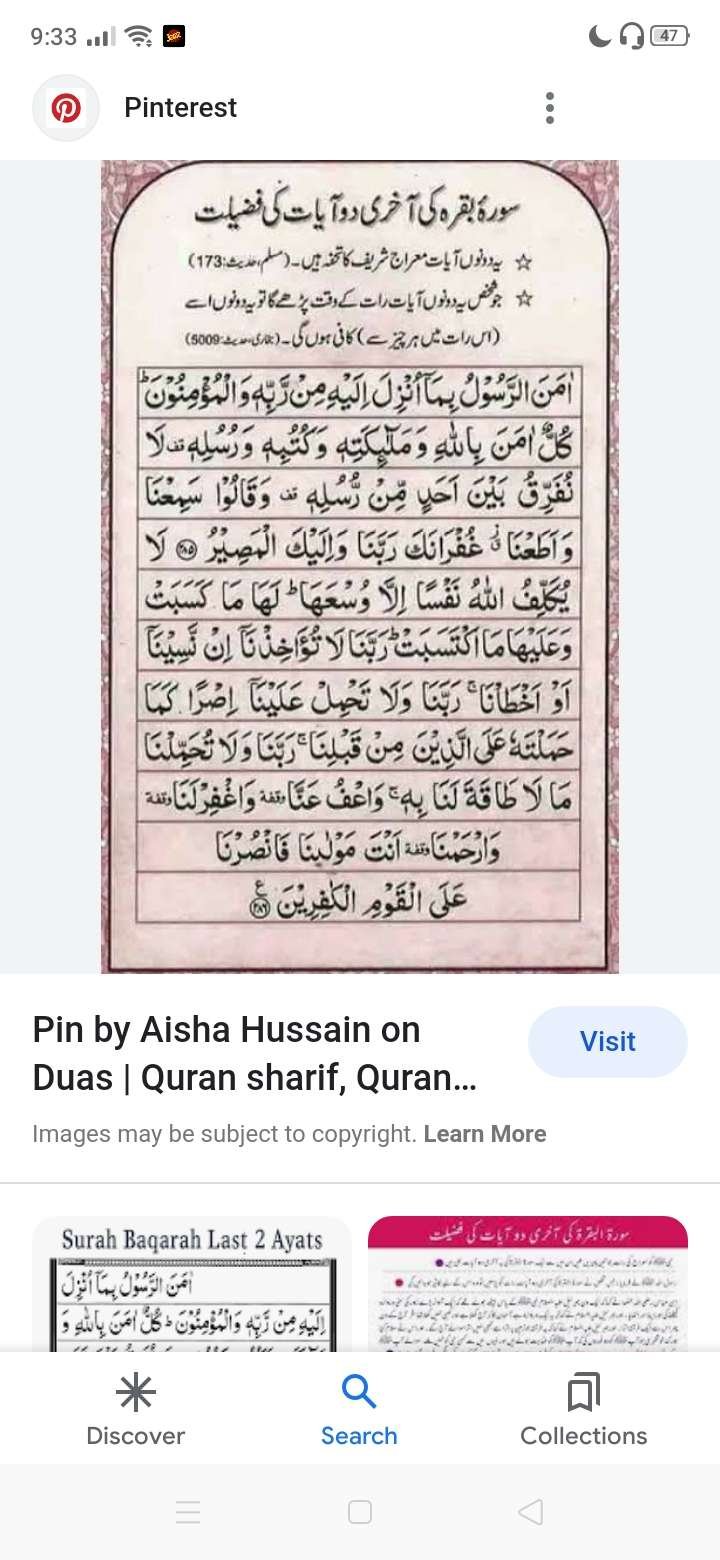 9:33
47
Pinterest
سورۂ بقرہ کی آخری دو آیات کی فضیلت
☆ یہ دونوں آیات معراج شریف کا تحفہ ہیں۔ (مسلم، حدیث:173)
☆ جو شخص یہ دونوں آیات رات کے وقت پڑھے گا تو یہ دونوں اسے
(اس رات میں ہر چیز سے) کافی ہوں گی۔ (بخاری، حدیث:5009)
اٰمَنَ الرَّسُوْلُ بِمَاۤ اُنْزِلَ اِلَیْهِ مِنْ رَّبِّهٖ وَ الْمُؤْمِنُوْنَ ؕ
كُلٌّ اٰمَنَ بِاللّٰهِ وَ مَلٰٓىِٕكَتِهٖ وَ كُتُبِهٖ وَ رُسُلِهٖ قف لَا
نُفَرِّقُ بَیْنَ اَحَدٍ مِّنْ رُّسُلِهٖ قف وَ قَالُوْا سَمِعْنَا
وَ اَطَعْنَا ق٘ غُفْرَانَكَ رَبَّنَا وَ اِلَیْكَ الْمَصِیْرُ ﴿۲۸۵﴾ لَا
یُكَلِّفُ اللّٰهُ نَفْسًا اِلَّا وُسْعَهَا ؕ لَهَا مَا كَسَبَتْ
وَ عَلَیْهَا مَا اكْتَسَبَتْ ؕ رَبَّنَا لَا تُؤَاخِذْنَاۤ اِنْ نَّسِیْنَاۤ
اَوْ اَخْطَاْنَا ۚ رَبَّنَا وَ لَا تَحْمِلْ عَلَیْنَاۤ اِصْرًا كَمَا
حَمَلْتَهٗ عَلَى الَّذِیْنَ مِنْ قَبْلِنَا ۚ رَبَّنَا وَ لَا تُحَمِّلْنَا
مَا لَا طَاقَةَ لَنَا بِهٖ ۚ وَ اعْفُ عَنَّا وقفة وَ اغْفِرْ لَنَا وقفة
وَ ارْحَمْنَا وقفة اَنْتَ مَوْلٰىنَا فَانْصُرْنَا
عَلَى الْقَوْمِ الْكٰفِرِیْنَ ﴿۲۸۶﴾ ع
Pin by Aisha Hussain on
Duas | Quran sharif, Quran...
Visit
Images may be subject to copyright. Learn More
Surah Baqarah Last 2 Ayats
اٰمَنَ الرَّسُوْلُ بِمَاۤ اُنْزِلَ
اِلَیْهِ مِنْ رَّبِّهٖ وَ الْمُؤْمِنُوْنَ ؕ كُلٌّ اٰمَنَ بِاللّٰهِ وَ
سورۃ البقرۃ کی آخری دو آیات کی فضیلت
Discover
Search
Collections